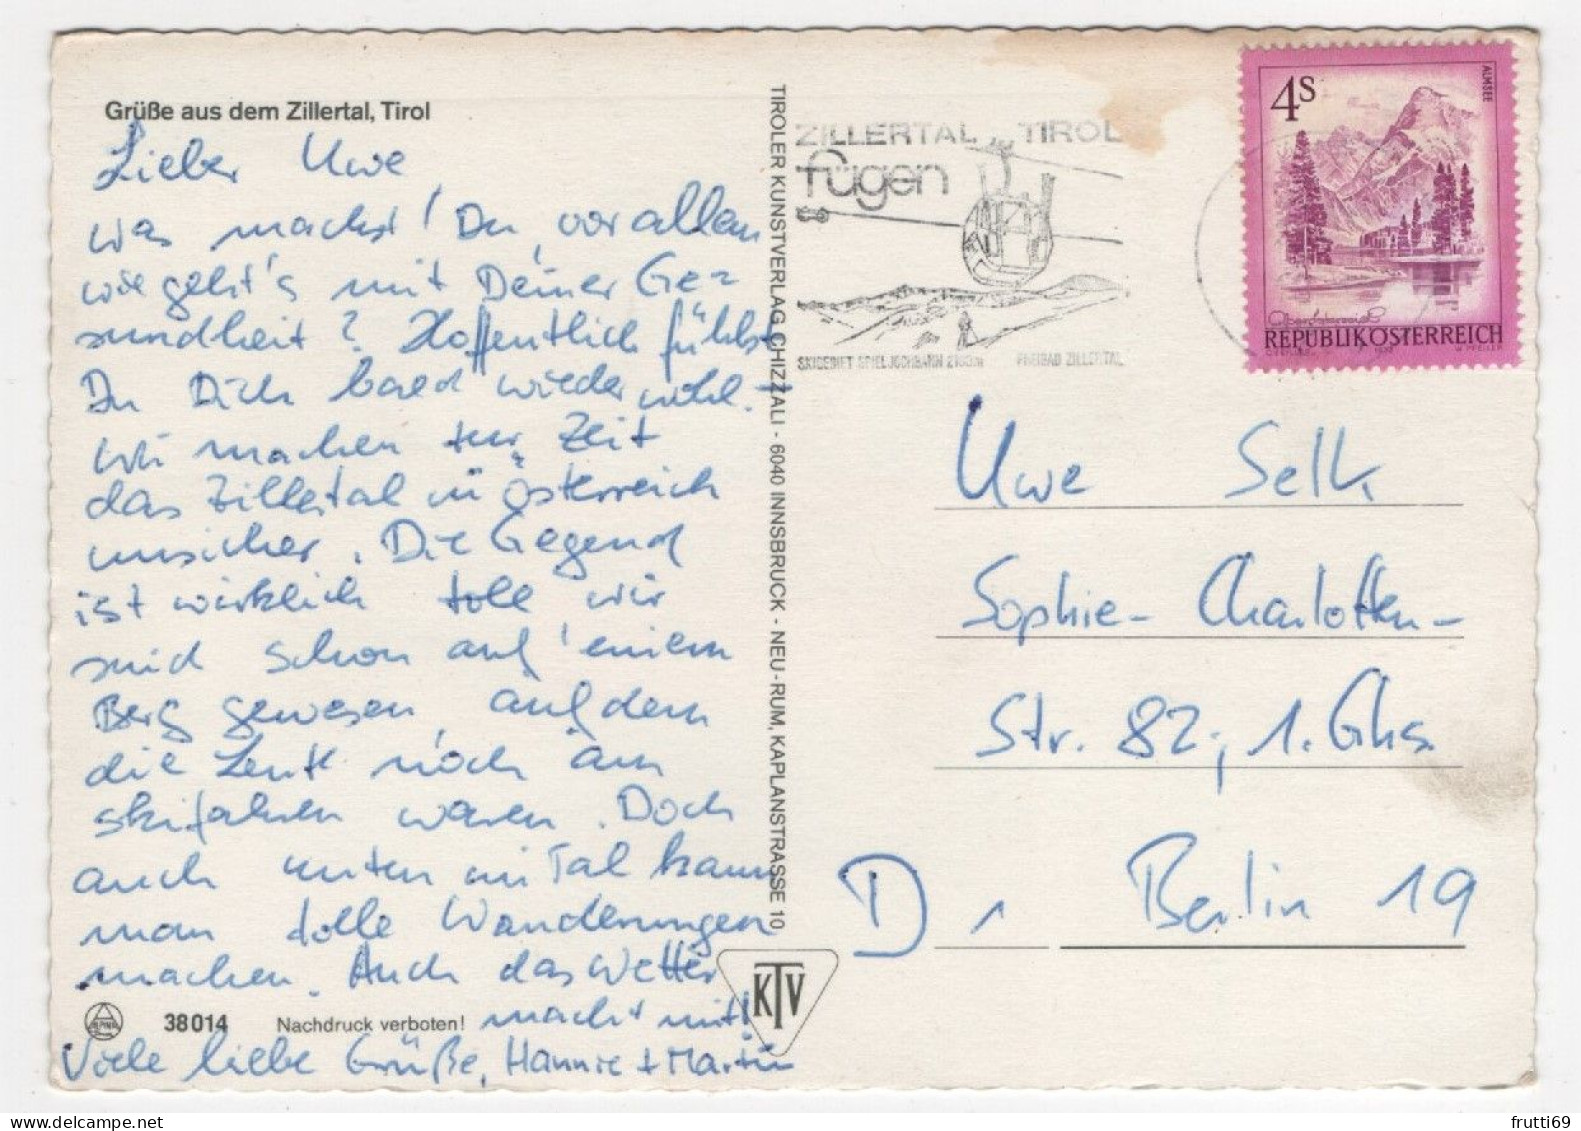 Grüße aus dem Zillertal, Tirol
Lieber Uwe
was machst Du, vor allem
wie geht's mit Deiner Ge-
sundheit? Hoffentlich fühlst
Du Dich bald wieder wohl.
Wir machen zur Zeit
das Zillertal in Österreich
unsicher. Die Gegend
ist wirklich toll wir
sind schon auf einem
Berg gewesen, auf dem
die Leute noch am
skifahren waren. Doch
auch unten im Tal kann
man tolle Wanderungen
machen. Auch das Wetter
macht mit!
Viele liebe Grüße, Hannie + Martin
38014
Nachdruck verboten!
TIROLER KUNSTVERLAG CHIZZALI - 6040 INNSBRUCK - NEU-RUM, KAPLANSTRASSE 10
KTV
ZILLERTAL TIROL
fügen
SKIGEBIET SPIELJOCHBAHN FREIBAD ZILLERTAL
4S
ALMSEE
REPUBLIK ÖSTERREICH
Uwe Selk
Sophie-Charlotten-
Str. 82, 1. Ghs
D 1 Berlin 19
frutti69